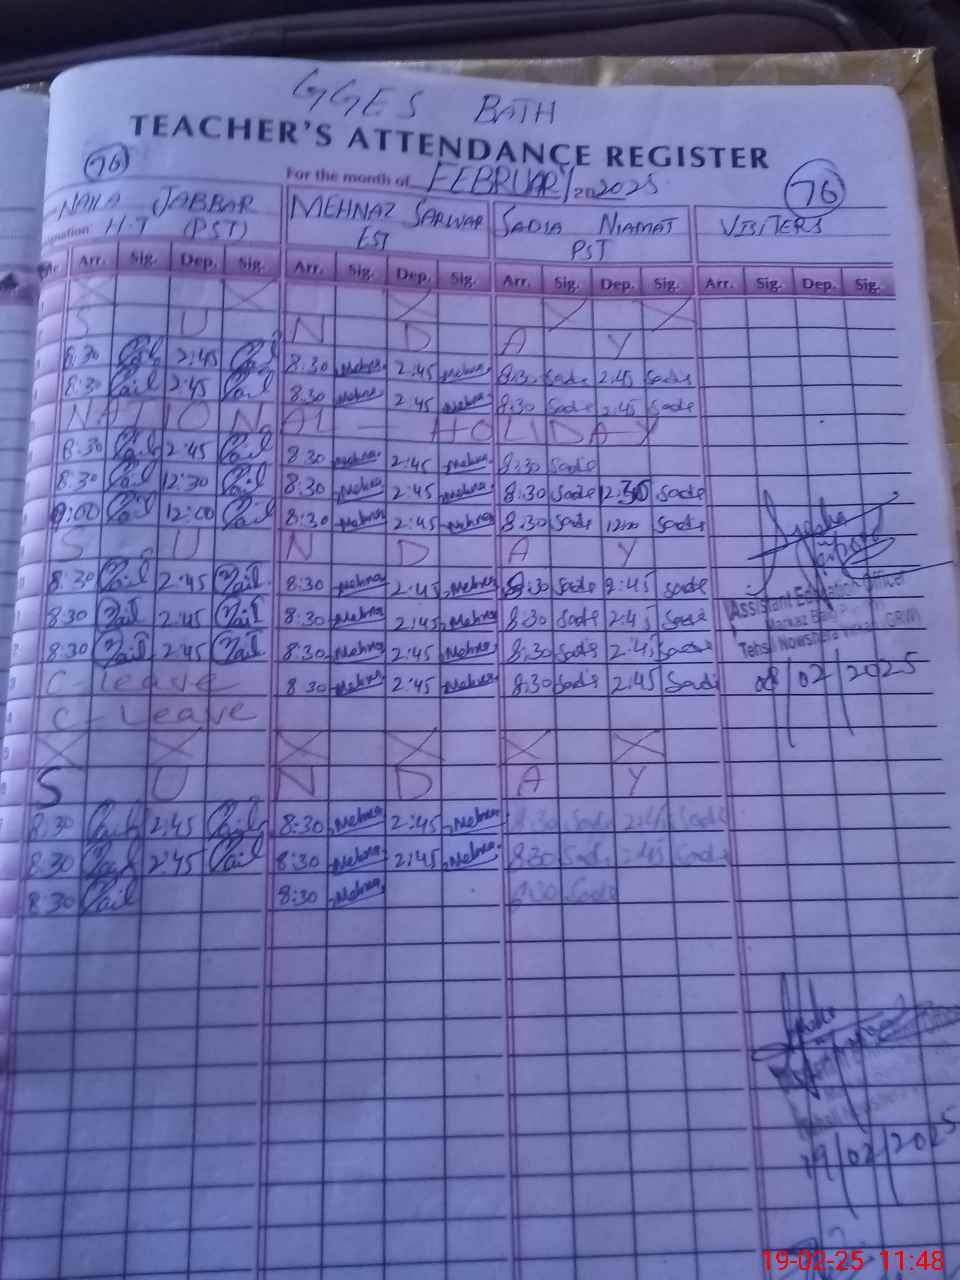 GGES BATH
TEACHER'S ATTENDANCE REGISTER
76 For the month of FEBRUARY 2025 76
NAILA JABBAR MEHNAZ SARWAR SADIA NIAMAT VISITERS
H.T (PST) EST PST
Arr. Sig. Dep. Sig. Arr. Sig. Dep. Sig. Arr. Sig. Dep. Sig. Arr. Sig. Dep. Sig.
X X X X X
S U N D A Y
8:30 2:45 8:30 Mehnaz 2:45 Mehnaz 8:30 Sadie 2:45 Sadie
8:30 2:45 8:30 Mehnaz 2:45 Mehnaz 8:30 Sadie 2:45 Sadie
NATIONAL HOLIDAY
8:30 2:45 8:30 Mehnaz 2:45 Mehnaz 8:30 Sadie
8:30 12:30 8:30 Mehnaz 2:45 Mehnaz 8:30 Sadie 12:30 Sadie
12:00 8:30 Mehnaz 2:45 Mehnaz 8:30 Sadie 12:00 Sadie
S U N D A Y
8:30 2:45 8:30 Mehnaz 2:45 Mehnaz 8:30 Sadie 2:45 Sadie
8:30 2:45 8:30 Mehnaz 2:45 Mehnaz 8:30 Sadie 2:45 Sadie
8:30 2:45 8:30 Mehnaz 2:45 Mehnaz 8:30 Sadie 2:45 Sadie
C-leave 8:30 Mehnaz 2:45 Mehnaz 8:30 Sadie 2:45 Sadie
C-Leave
X X X X X X
S U N D A Y
8:30 2:45 8:30 Mehnaz 2:45 Mehnaz 8:30 Sadie 2:45 Sadie
8:30 2:45 8:30 Mehnaz 2:45 Mehnaz 8:30 Sadie 2:45 Sadie
8:30 8:30 Mehnaz 8:30 Sadie
Assistant Education Officer
Markaz
Tehsil Nowshera Virkan GRW
08/02/2025
19/02/2025
19-02-25 11:48